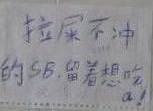 拉屎不冲
的SB.留着想吃
a!